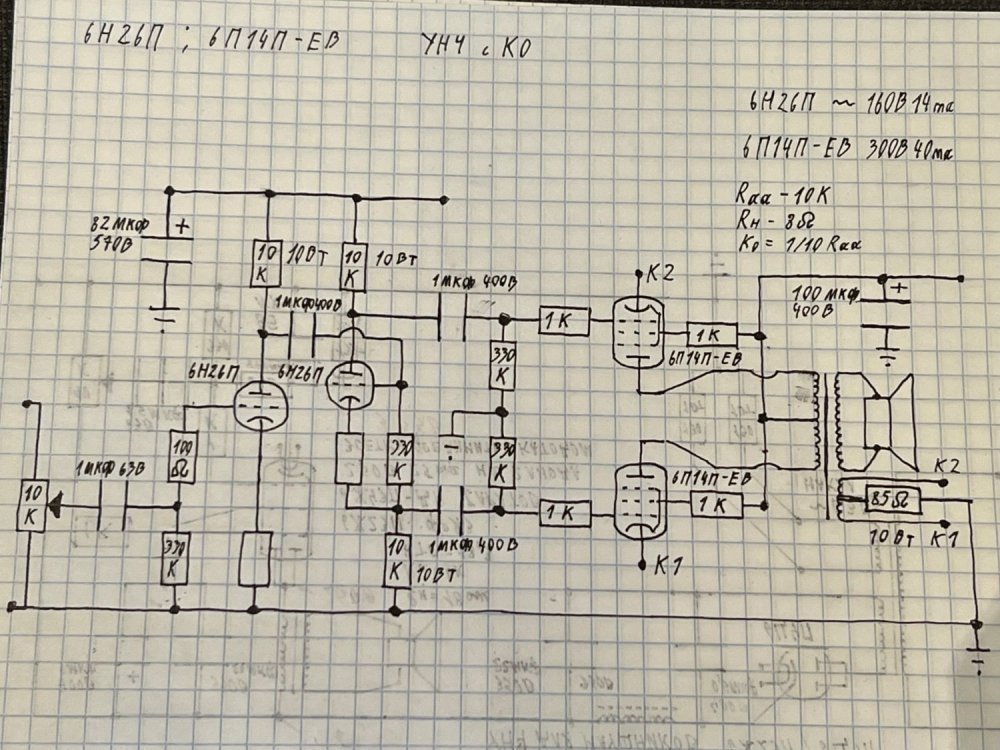 6Н26П ; 6П14П-ЕВ УНЧ с КО
6Н26П ~ 160В 14ma
6П14П-ЕВ 300В 40ma
Raa - 10K
Rн - 8Ω
Ко = 1/10 Raa
82 мкф
570В
+
10
К
10Вт
10
К
10Вт
1мкф 400В
1мкф 400В
К2
1К
1К
6П14П-ЕВ
100 мкф
400В
+
6Н26П
6Н26П
330
К
100
Ω
330
К
330
К
1мкф 63В
10
К
330
К
10
К
10Вт
1мкф 400В
1К
1К
6П14П-ЕВ
К1
К2
85Ω
10 Вт
К1